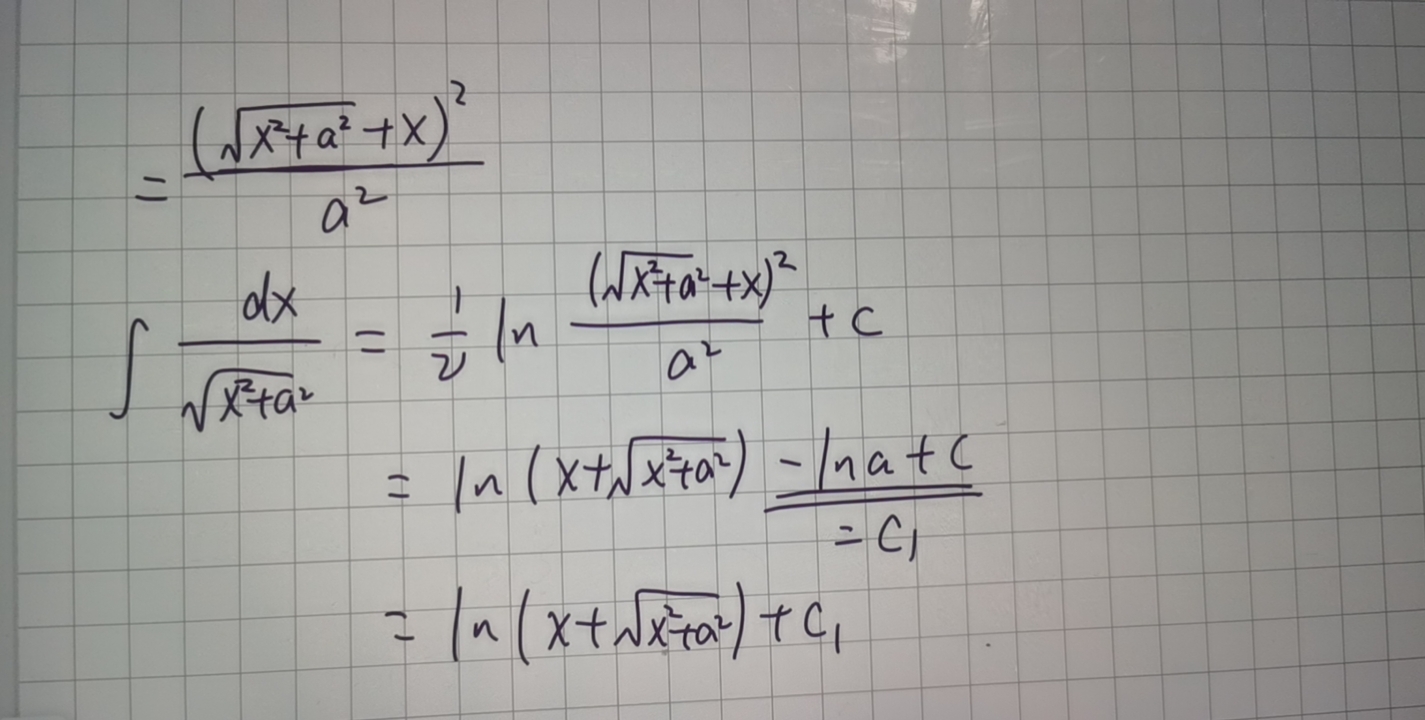 = (√(x²+a²) + x)² / a²
∫ dx / √(x²+a²) = 1/2 ln (√(x²+a²) + x)² / a² + C
= ln (x + √(x²+a²)) - ln a + C
= C₁
= ln (x + √(x²+a²)) + C₁